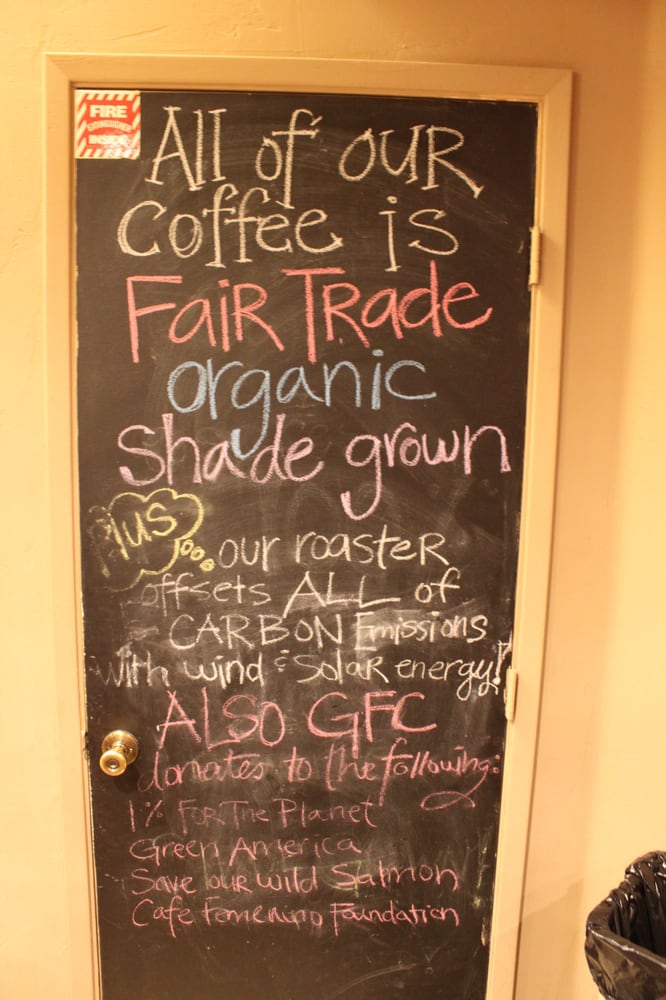 FIRE
EXTINGUISHER
INSIDE
All of our
coffee is
Fair Trade
organic
shade grown
plus... our roaster
offsets ALL of
CARBON Emissions
with wind & Solar energy!
ALSO GFC
donates to the following:
1% For The Planet
Green America
Save our wild Salmon
Cafe Femenino Foundation